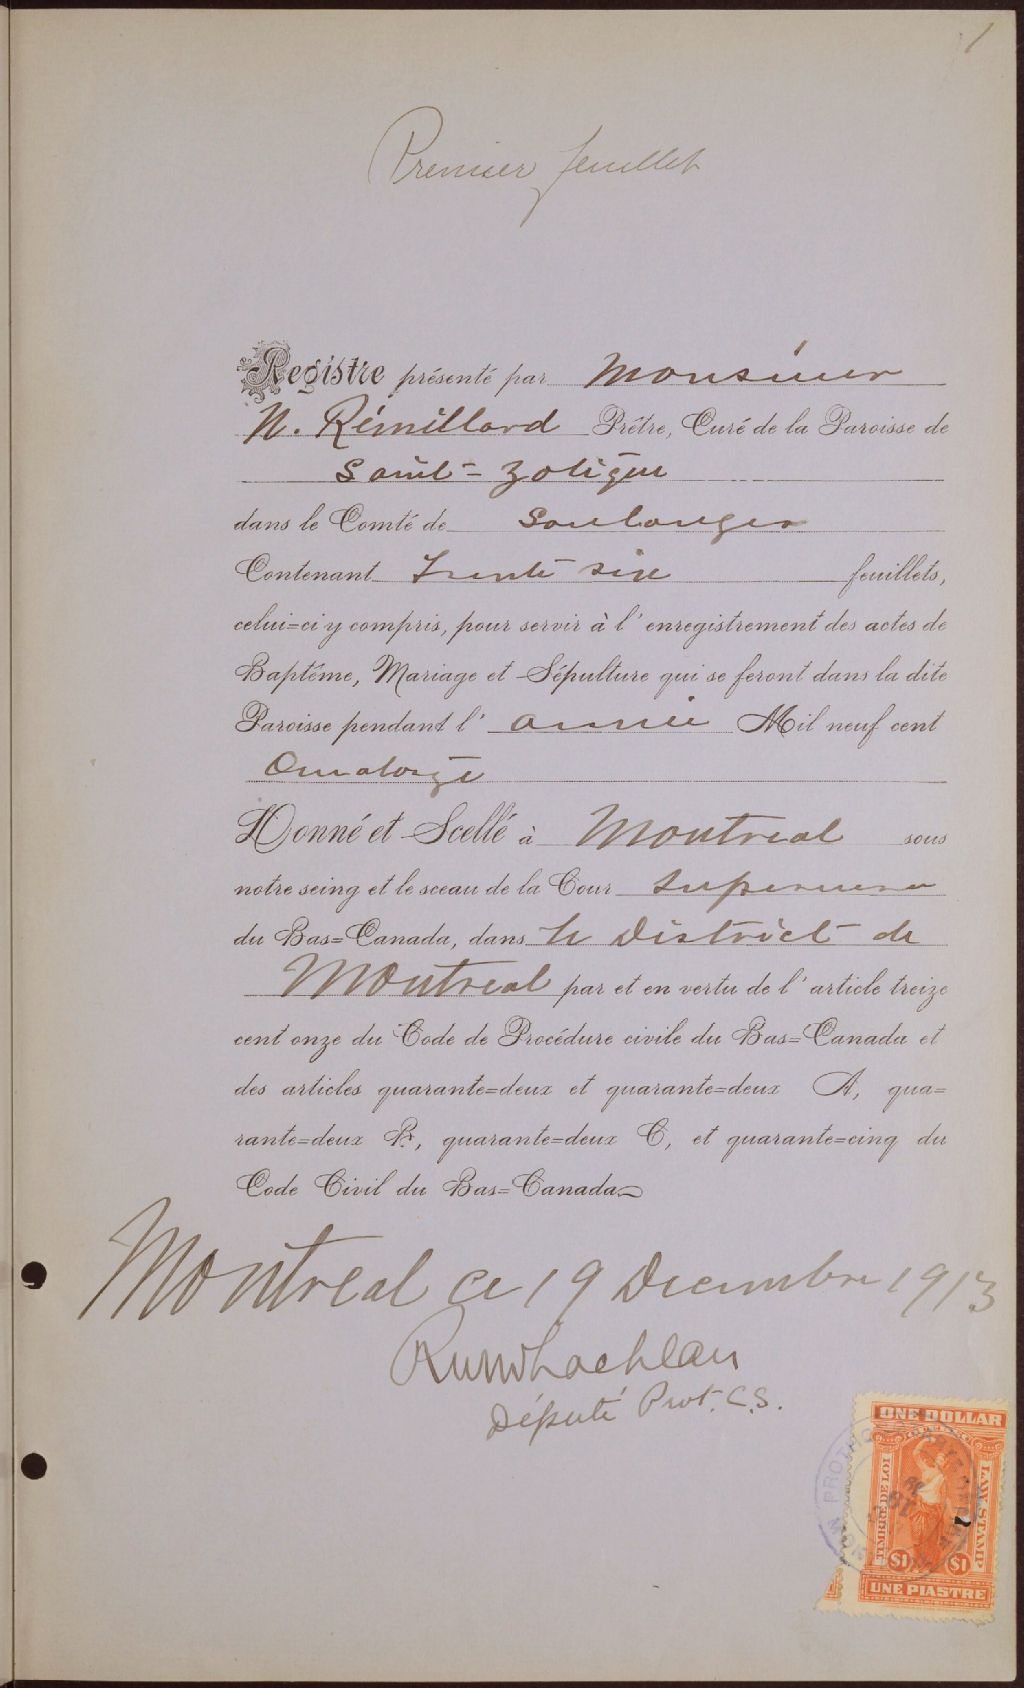 1
Premier feuillet
Registre présenté par Monsieur
N. Rémillard Prêtre, Curé de la Paroisse de
Saint-Zotique
dans le Comté de Soulanges
Contenant Trente six feuillets,
celui=ci y compris, pour servir à l'enregistrement des actes de
Baptême, Mariage et Sépulture qui se feront dans la dite
Paroisse pendant l'année Mil neuf cent
Quatorze
Donné et Scellé à Montreal sous
notre seing et le sceau de la Cour Superieure
du Bas=Canada, dans le District de
Montreal par et en vertu de l'article treize
cent onze du Code de Procédure civile du Bas=Canada et
des articles quarante=deux et quarante=deux A, qua=
rante=deux B, quarante=deux C, et quarante=cinq du
Code Civil du Bas=Canada
Montreal ce 19 Decembre 1913
Député Prot. C.S.
ONE DOLLAR
TIMBRE DE LOI
LAW STAMP
$1 $1
UNE PIASTRE